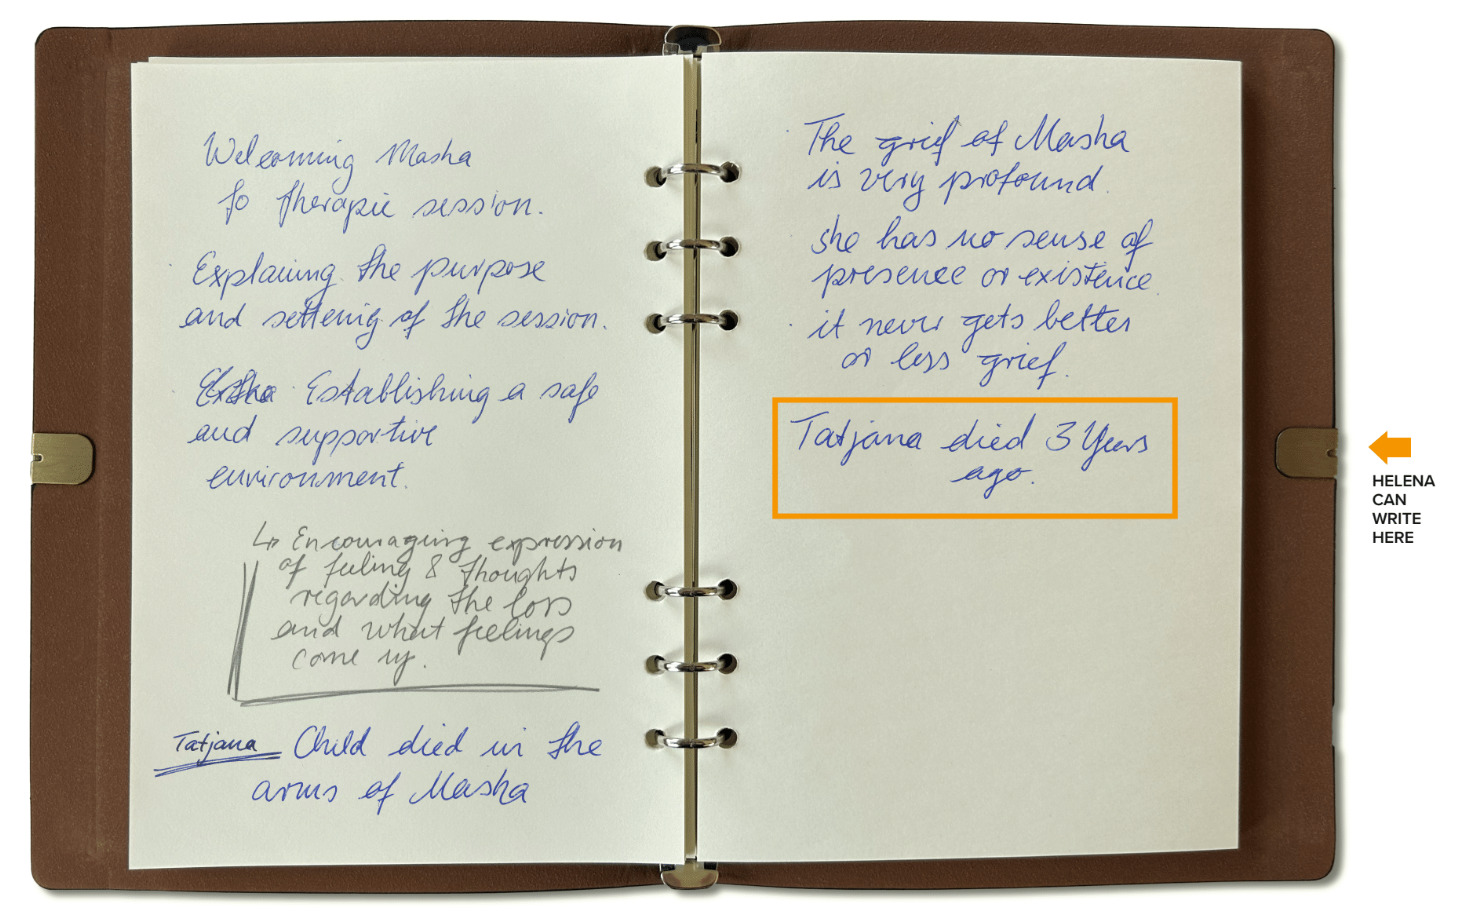 Welcoming Masha
to therapie session.
Explaining the purpose
and settenig of the session.
Establishing a safe
and supportive
environment.
↳ Encouraging expression
of feeling & thoughts
regarding the loss
and what feelings
come up.
Tatjana Child died in the
arms of Masha
The grief of Masha
is very profound.
she has no sense of
presence or existence.
it never gets better
or less grief.
Tatjana died 3 Years
ago.
HELENA
CAN
WRITE
HERE